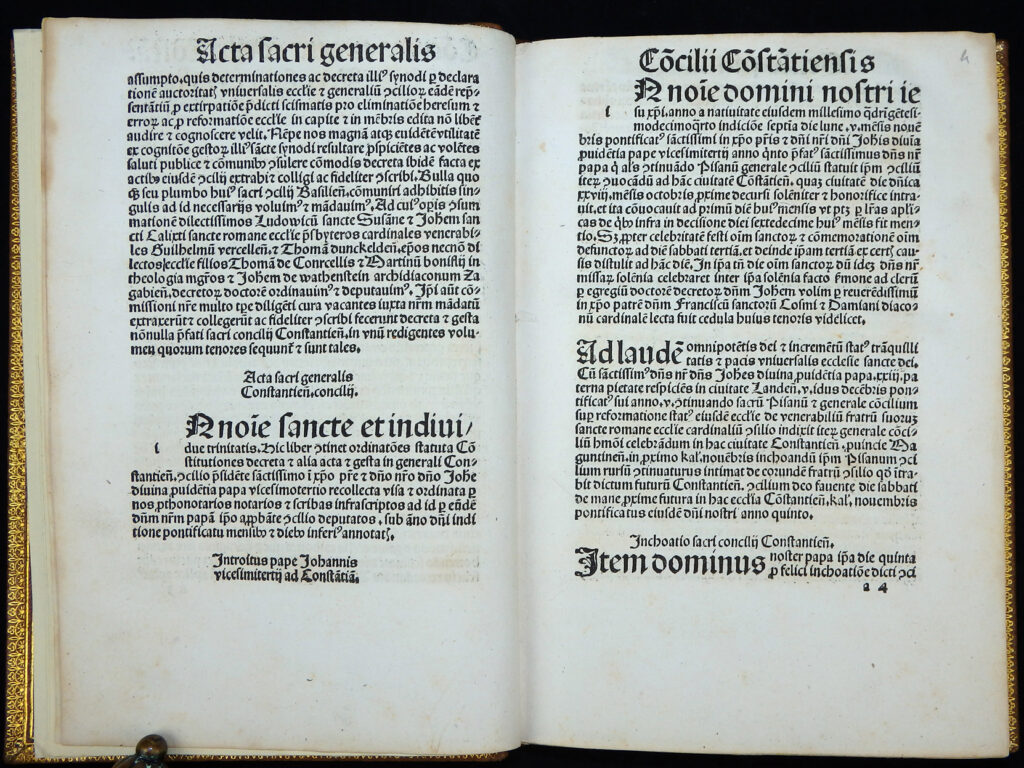 Acta sacri generalis
assumpto, quis determinationes ac decreta illiꝰ synodi ꝑ declara
tionē auctoritaꝭ vniuersalis ecclīe ⁊ generaliū ꝯcilioꝝ eādē rep̄-
sentātiū ꝓ extirpatiōe p̄dicti scismatis pro eliminatiōe heresum ⁊
erroꝝ ac ꝓ reformatiōe ecclīe in capite ⁊ in mēbris edita nō libēt
audire ⁊ cognoscere velit. Nēpe nos magnā atqꝫ euidētē vtilitatē
ex cognitōe gestoꝝ illiꝰ sācte synodi resultare ꝓspiciētes ac volētes
saluti publice ⁊ cōmunibꝰ ꝯsulere cōmodis decreta ibidē facta ex
actibꝰ eiusdē ꝯcilij extrahi ⁊ colligi ac fideliter ꝯscribi. Bulla quo
qꝫ seu plumbo huiꝰ sacri ꝯcilij Basilieñ. cōmuniri adhibitis sin-
gulis ad id necessarijs voluimꝰ ⁊ mādauimꝰ. Ad cuiꝰ oꝑis ꝯsum
mationē dilectissimos Ludouicū sancte Susāne ⁊ Johem san
cti Calixti sancte romane ecclīe p̄sbyteros cardinales venerabi-
les Guilhelmū vercelleñ. ⁊ Thomā dunckeldeñ. epōs necnō di
lectos ecclīe filios Thomā de Corcellis ⁊ Martinū bonistīj in
theologia mgr̄os ⁊ Johem de wathenstein archidiaconum Za
gabieñ. decretoꝝ doctorē ordinauimꝰ ⁊ deputauimꝰ. Jp̄i aūt cō-
missioni nr̄e multo tꝑe diligēti cura vacantes iuxta nr̄m mādatū
extraxerūt ⁊ collegerūt ac fideliter ꝯscribi fecerunt decreta ⁊ gesta
nōnulla p̄fati sacri concilij Constancieñ. in vnū redigentes volu-
men quorum tenores sequunꝉ ⁊ sunt tales.
Acta sacri generalis
Constancieñ. concilij.
N noīe sancte et indiui/
i due trinitatis. Hic liber ꝯtinet ordinatōes statuta Cō
stitutiones decreta ⁊ alia acta ⁊ gesta in generali Con-
stantieñ. ꝯcilio p̄sidēte sāctissimo ī xp̄o pr̄e ⁊ dn̄o nr̄o dn̄o Johe
diuina ꝓuidētia papa vicesimotertio recollecta visa ⁊ ordinata ꝑ
nos ꝓthonotarios notarios ⁊ scribas infrascriptos ad id ꝑ eūdē
dn̄m nr̄m papā ip̄o aꝓbāte ꝯcilio deputatos. sub āno dn̄i indi
tione pontificatu mensibꝰ ⁊ diebꝰ inferiꝰ annotatꝭ.
Introitus pape Johannis
vicesimitertij ad Constātiā.
Cōcilii Cōstātiensis
N noīe domini nostri ie
i su xp̄i. anno a natiuitate eiusdem millesimo q̄dringētesi-
modecimoq̄rto indiciōe septīa die lune. v. mēsis nouē
bris pontificatꝰ sāctissimi in xp̄o pr̄is ⁊ dn̄i nr̄i dn̄i Johis diuīa
ꝓuidētia pape vicesimitertij anno q̄nto p̄fatꝰ sāctissimus dn̄s nr̄
papa q̄ al̄s ꝯtinuādo Pisanū generale ꝯciliū statuit ip̄m ꝯciliū
iteꝝ ꝯuocādū ad hāc ciuitatē Cōstātieñ. quaꝫ ciuitatē die dn̄ica
xxviij. mēsis octobris ꝓxime decursi solēniter ⁊ honorifice intra
uit. et ita cōuocauit ad primū diē huiꝰ mensis vt ptꝫ ꝑ lr̄as apl̄i-
cas de q̄bꝰ infra in decisione diei sextedecime huiꝰ mēsis fit men-
tio. Sꝫ ꝓpter celebritatē festi oīm sanctoꝝ ⁊ cōmemorationē oīm
defunctoꝝ ad diē sabbati tertiā. et deinde ip̄am tertiā ex certꝭ cau
sis distulit ad hāc diē. In ip̄a tn̄ die oīm sanctoꝝ dn̄ ideꝫ dn̄s nr̄
missaꝝ solēnia celebraret inter ip̄a solēnia facto ſmone ad clerū
ꝑ egregiū doctorē decretoꝝ dn̄m Johem volim ꝑ reuerēdissimū
in xp̄o patrē dn̄m Franciscū sanctorū Cosmi ⁊ Damiani diaco-
nū cardinalē lecta fuit cedula huius tenoris videlicet.
Ad laudē omnipotētis dei ⁊ incremētū statꝰ trāquilli
tatis ⁊ pacis vniuersalis ecclesie sancte dei.
Cū sāctissimꝰ dn̄s nr̄ dn̄s Johēs diuina ꝓuidētia papa. xxiij. pa
terna pietate respiciēs in ciuitate Laudeñ. v. idus decēbris pon-
tificatꝰ sui anno. v. ꝯtinuando sacrū Pisanū ⁊ generale cōcilium
suꝑ reformatione statꝰ eiusdē ecclīe de venerabiliū fratrū suoruꝫ
sancte romane ecclīe cardinaliū ꝯsilio indixit iteꝝ generale cōci-
liū hmōi celebrādum in hac ciuitate Constantieñ. ꝓuincie Ma
guntineñ. in ꝓximo kal. nouēbris inchoandū ip̄m Pisanum ꝯcil
lium rursū ꝯtinuaturus intimat de eorundē fratrū ꝯsilio qd̄ ītra
bit dictum futurū Constantieñ. ꝯcilium deo fauente die sabbati
de mane. ꝓxime futura in hac ecclīa Cōstātieñ. kal. nouembris
pontificatus eiusdē dn̄i nostri anno quinto.
Inchoatio sacri concilij Constantieñ.
Item dominus noster papa ip̄a die quinta
ꝓ felici inchoatiōe dicti ꝯci
a 4
4